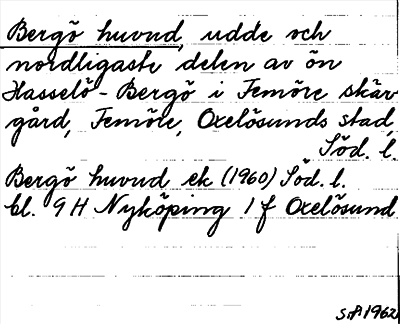 Bergö huvud, udde och
nordligaste delen av ön
Hasselö-Bergö i Femöre skär
gård, Femöre, Oxelösunds stad,
Söd. l.
Bergö huvud ek (1960) Söd. l.
bl. 9 H Nyköping 1 f Oxelösund
1962